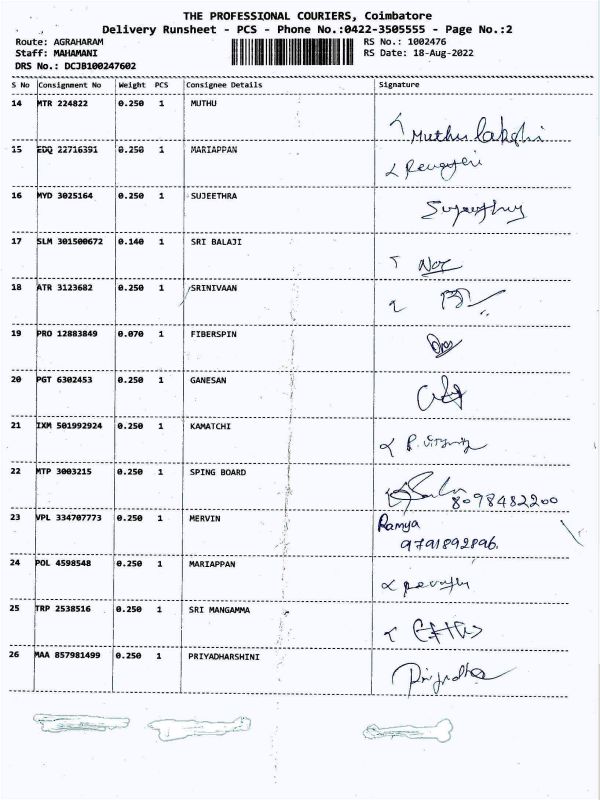 THE PROFESSIONAL COURIERS, Coimbatore
Delivery Runsheet - PCS - Phone No.:0422-3505555 - Page No.:2
Route: AGRAHARAM RS No.: 1002476
Staff: MAHAMANI RS Date: 18-Aug-2022
DRS No.: DCJB100247602
S No Consignment No Weight PCS Consignee Details Signature
14 MTR 224822 0.250 1 MUTHU
Muthu Lakshi
15 EDQ 22716391 0.250 1 MARIAPPAN
16 MYD 3025164 0.250 1 SUJEETHRA
17 SLM 301500672 0.140 1 SRI BALAJI
18 ATR 3123682 0.250 1 SRINIVAAN
19 PRO 12883849 0.070 1 FIBERSPIN
20 PGT 6302453 0.250 1 GANESAN
21 IXM 501992924 0.250 1 KAMATCHI
22 MTP 3003215 0.250 1 SPING BOARD
8098482200
23 VPL 334707773 0.250 1 MERVIN Ramya
9791892896.
24 POL 4598548 0.250 1 MARIAPPAN
25 TRP 2538516 0.250 1 SRI MANGAMMA
26 MAA 857981499 0.250 1 PRIYADHARSHINI